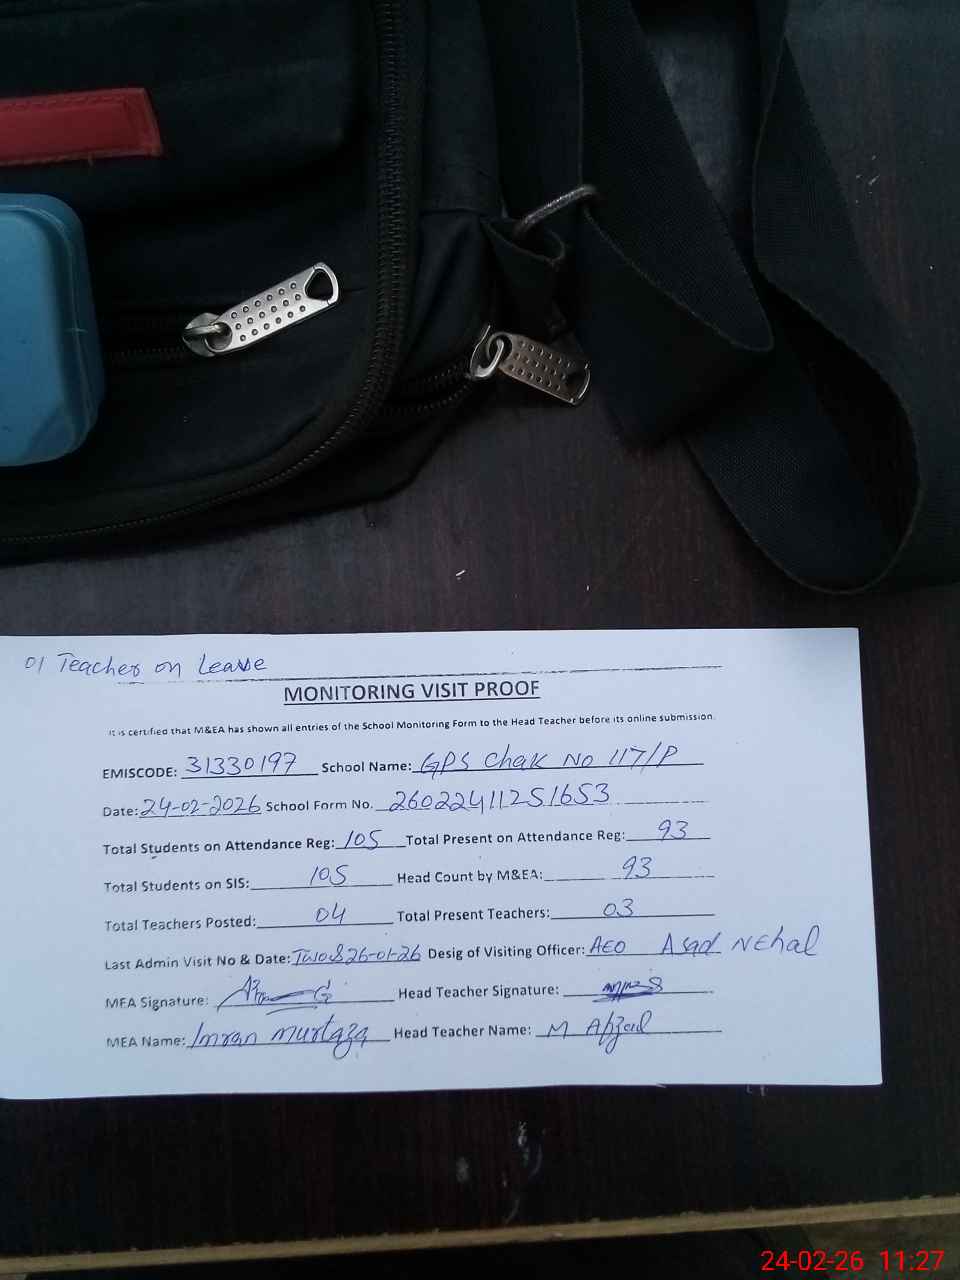 01 Teacher on Leave
MONITORING VISIT PROOF
It is certified that M&EA has shown all entries of the School Monitoring Form to the Head Teacher before its online submission.
EMISCODE: 31330197 School Name: GPS Chak No 117/P
Date: 24-02-2026 School Form No. 26022411251653
Total Students on Attendance Reg: 105 Total Present on Attendance Reg: 93
Total Students on SIS: 105 Head Count by M&EA: 93
Total Teachers Posted: 04 Total Present Teachers: 03
Last Admin Visit No & Date: Two & 26-01-26 Desig of Visiting Officer: AEO Asad Nehal
MEA Signature: Head Teacher Signature:
MEA Name: Imran Murtaza Head Teacher Name: M Afzal
24-02-26 11:27